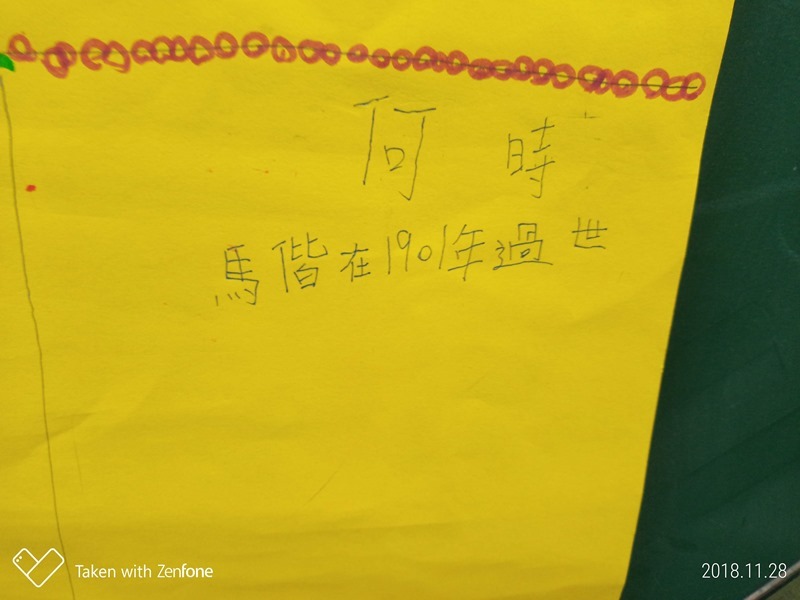 何時
馬偕在1901年過世
Taken with Zenfone
2018.11.28